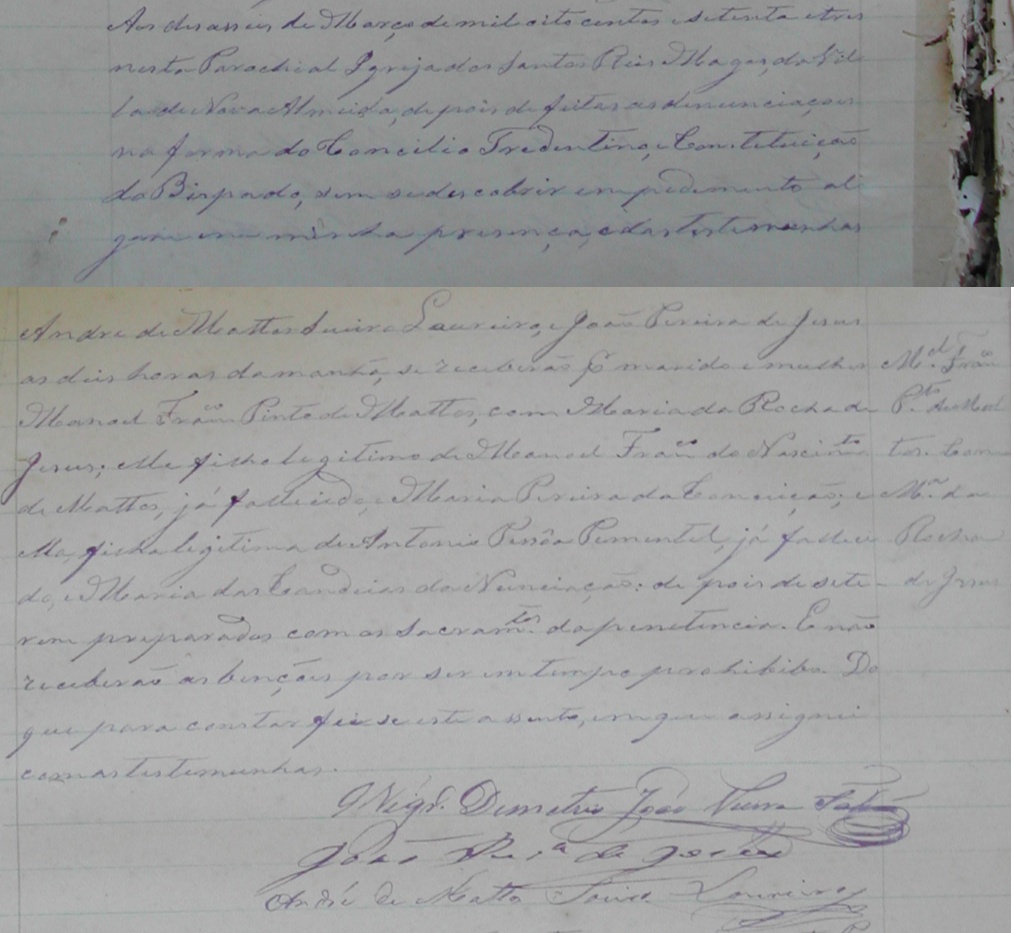 Aos desasseis de Março de mil oito centos e setenta e tres
nesta Parochial Igreja dos Santos Reis Magos, da Vil-
la de Nova Almeida, depois de feitas as denunciações
na forma do Concilio Tredentino, e Constetuição
do Bispado, sem se descobrir empedemento al-
gum em minha presença, e das testemunhas
Andre de Mattos Loureiro, e João Pereira de Jesus
as deis horas da manhã, se receberão marido e mulher
Manoel Franco Pinto de Mattos, com Maria da Rocha de
Jesus; elle filho legitimo de Manoel Franco do Nascimto
de Mattos, já fallecido, e Maria Pereira da Conceição; e
ella, filha legitima de Antonio Pimentel, já falleci
do, e Maria das Candeias da Nunciação: de pois de este-
rem preparados com os sacramtos da penetencia. E não
receberão as benções por ser em tempo prohibibo. Do
que para constar fiz este assento, em que assignei
com as testemunhas.
Mel Franco
Pto de Mat
tos. Com
Ma da
Rocha
de Jesus
Demetrio João
João Pera de Jesus
André de Matto Loureiro